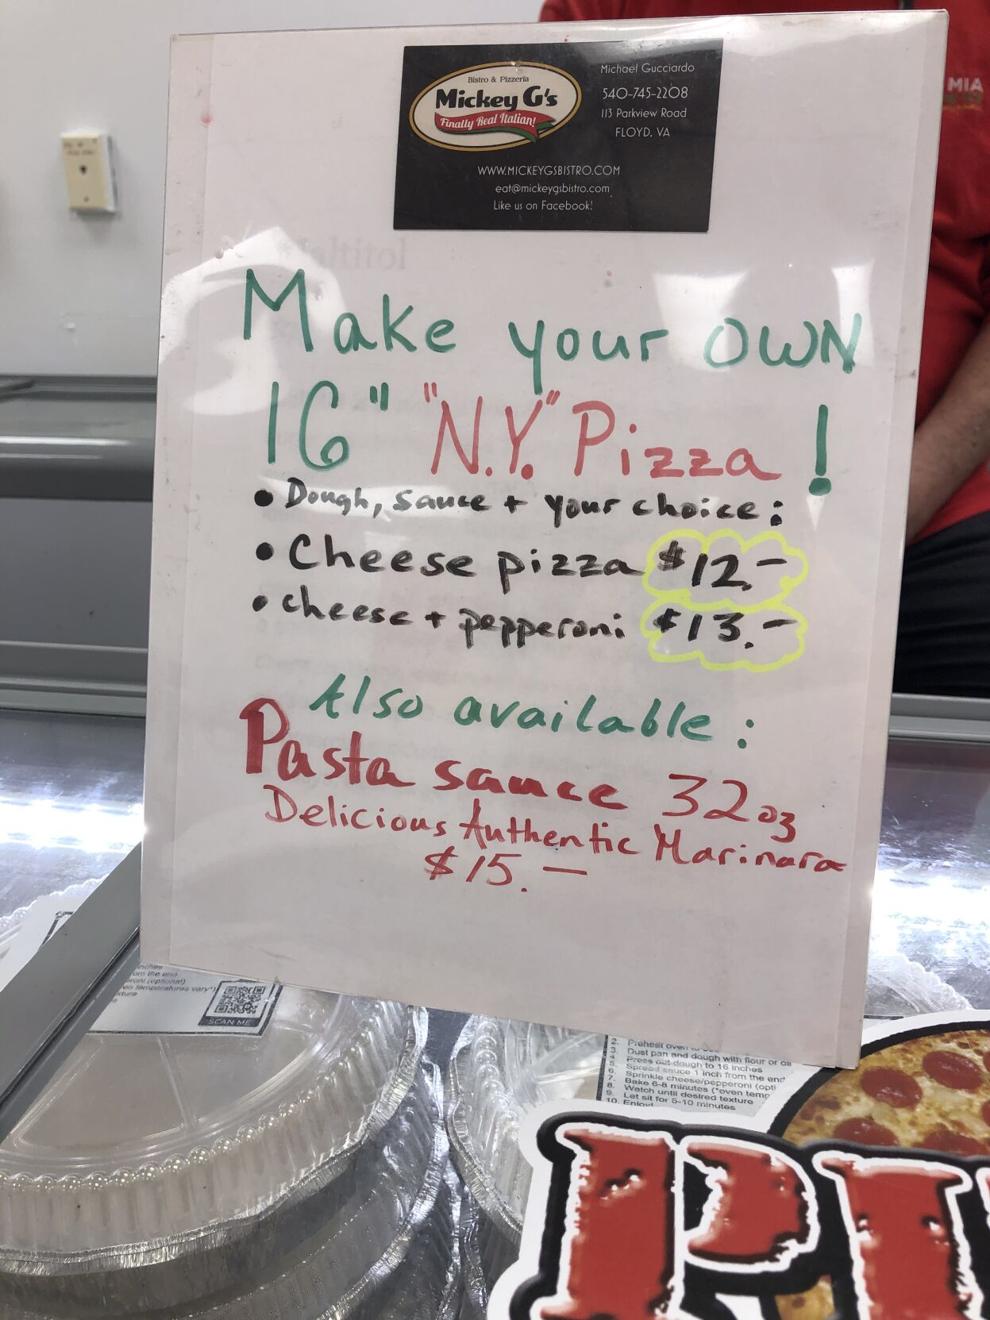 Bistro & Pizzeria
Mickey G's
Finally Real Italian!
Michael Gucciardo
540-745-2208
113 Parkview Road
FLOYD, VA
WWW.MICKEYGSBISTRO.COM
eat@mickeygsbistro.com
Like us on Facebook!
MIA
Make your OWN
16" "N.Y." Pizza!
• Dough, sauce + your choice:
• Cheese pizza $12.-
• cheese + pepperoni $13.-
Also available:
Pasta sauce 32oz
Delicious Authentic Marinara
$15.-
inches
from the end
roni (optional)
en temperatures vary*)
xture
es
SCAN ME
2. Preheat oven
3. Dust pan and dough with flour or
5. Press out dough to 16 inches
6. Spread sauce 1 inch from the end
7. Sprinkle cheese/pepperoni (opti
8. Bake 6-8 minutes (*oven temp
9. Watch until desired texture
10. Let sit for 5-10 minutes
Enjoy!
PI